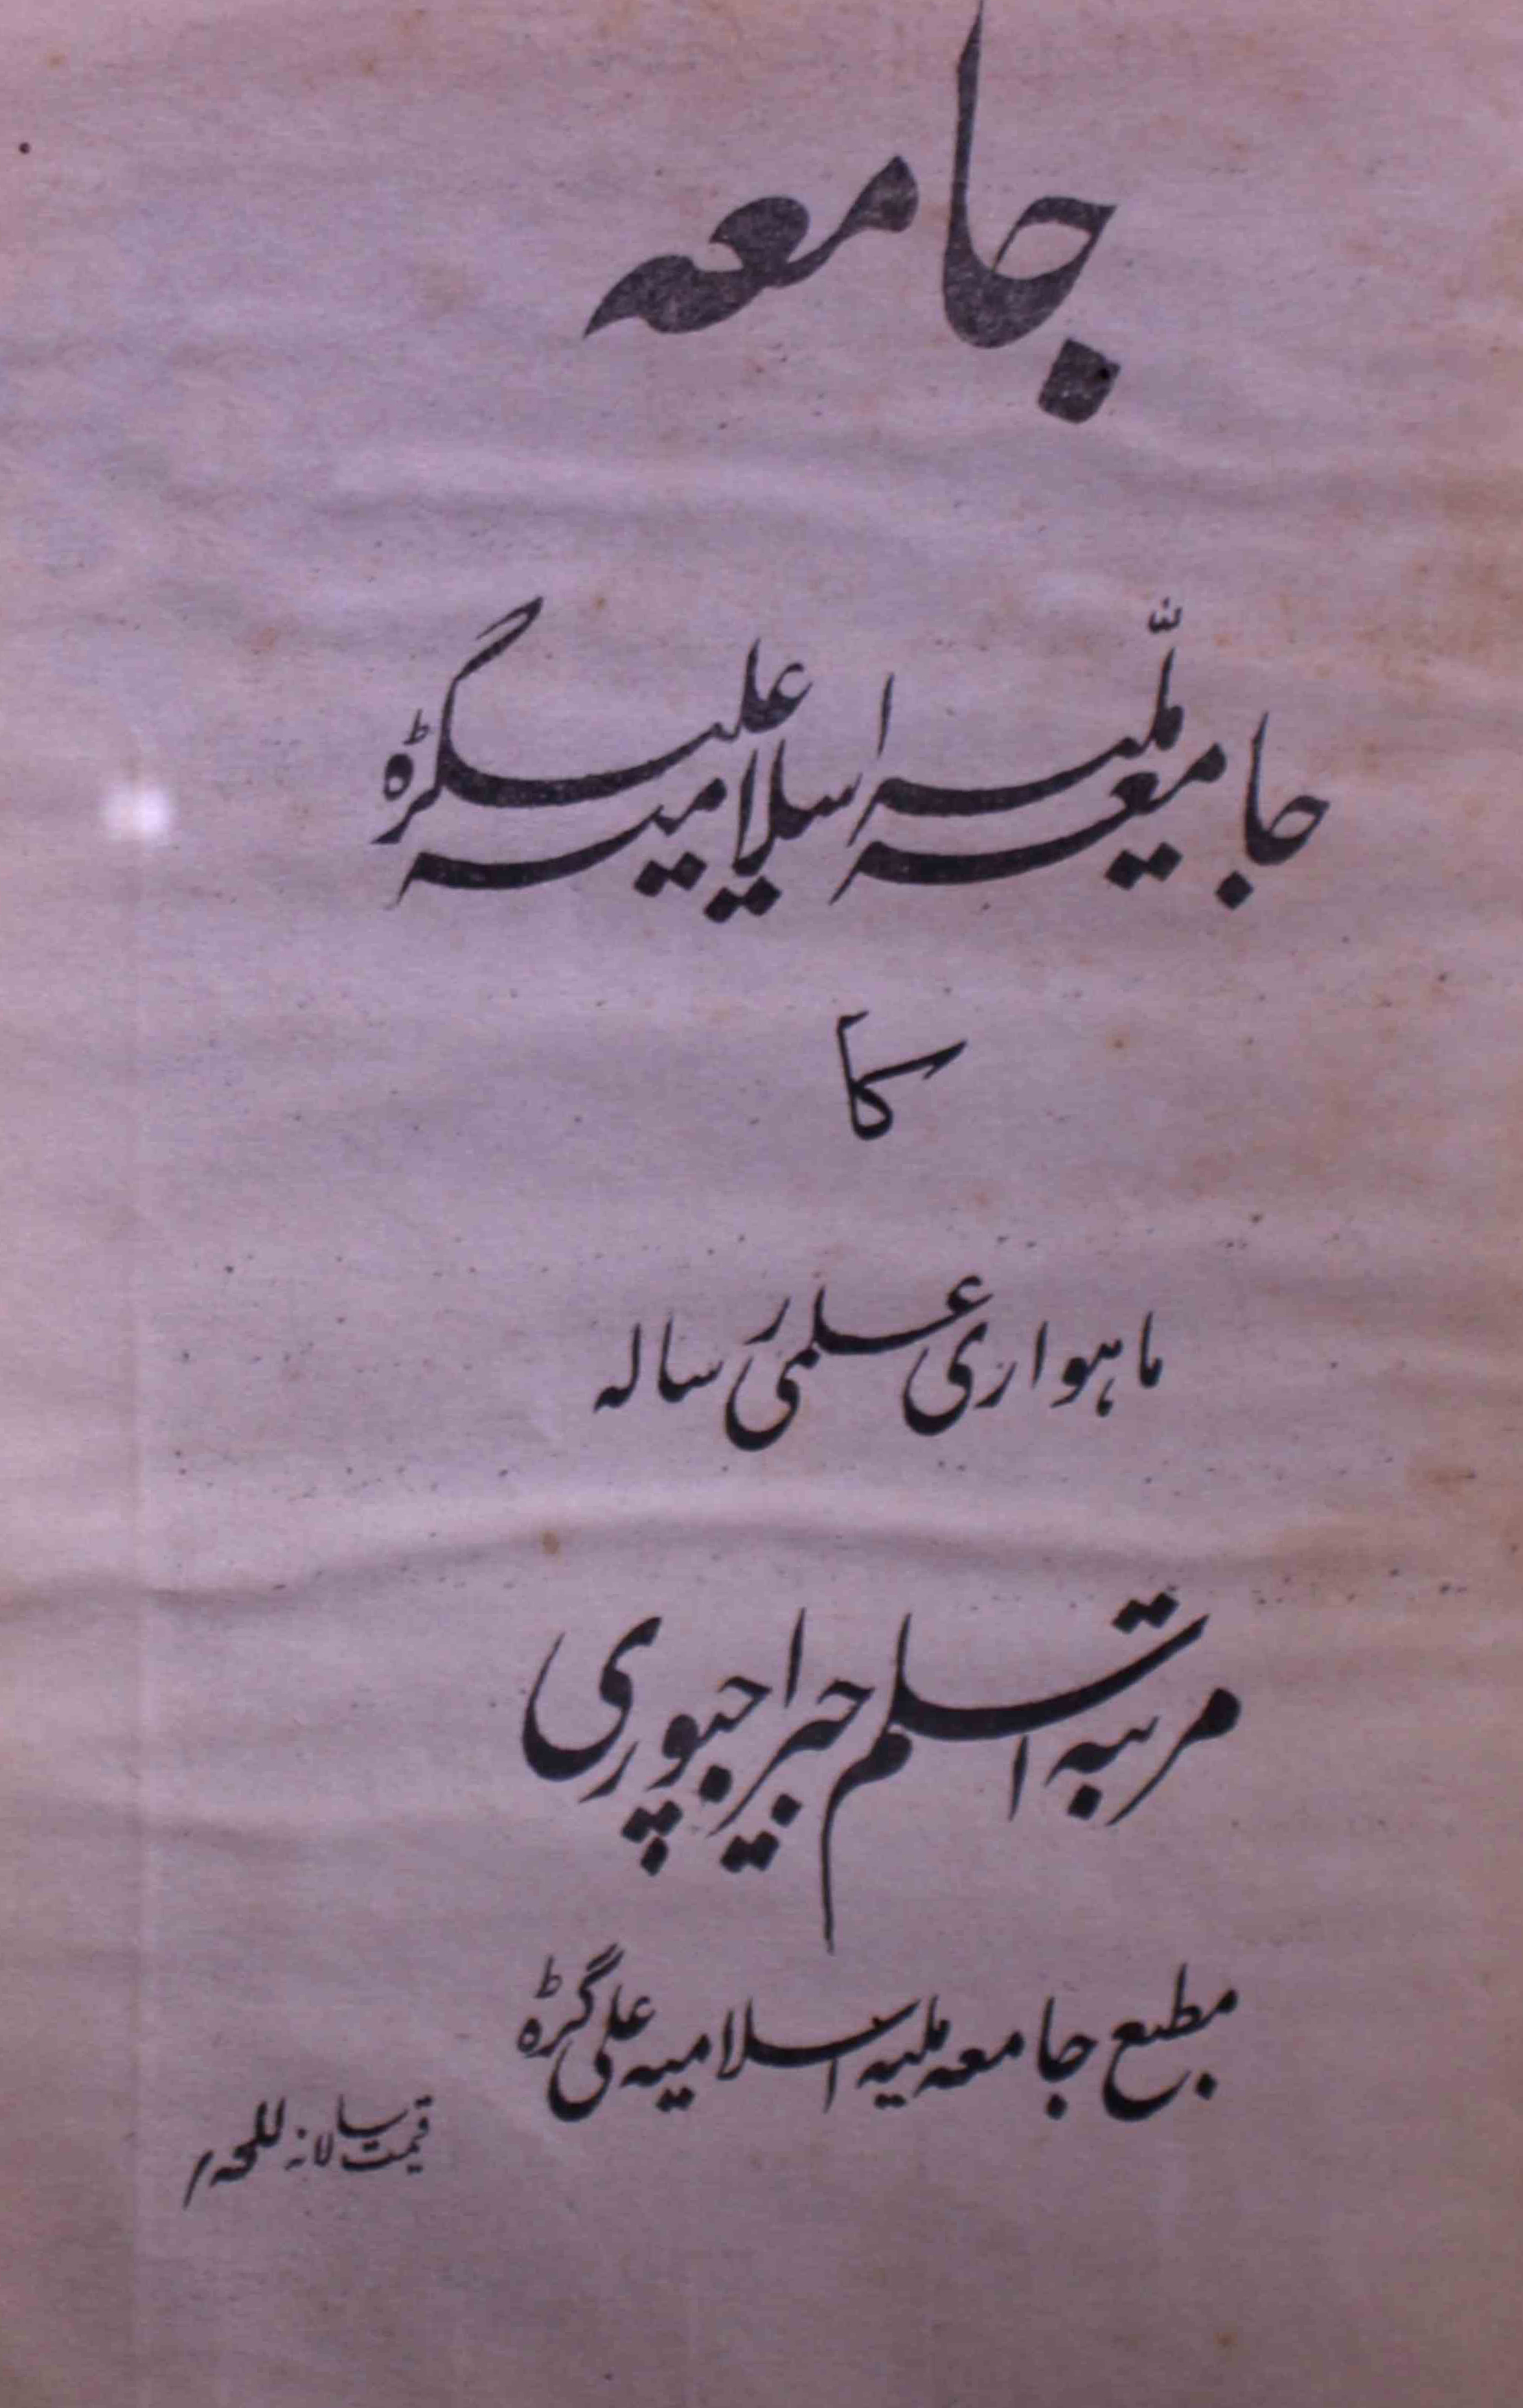 جامعہ
جامعہ ملّیہ اسلامیہ علیگڑہ
کا
ماہواری علمی رسالہ
مرتبہ اسلم جیراجپوری
مطبع جامعہ ملیہ اسلامیہ علی گڑہ
قیمت سالانہ